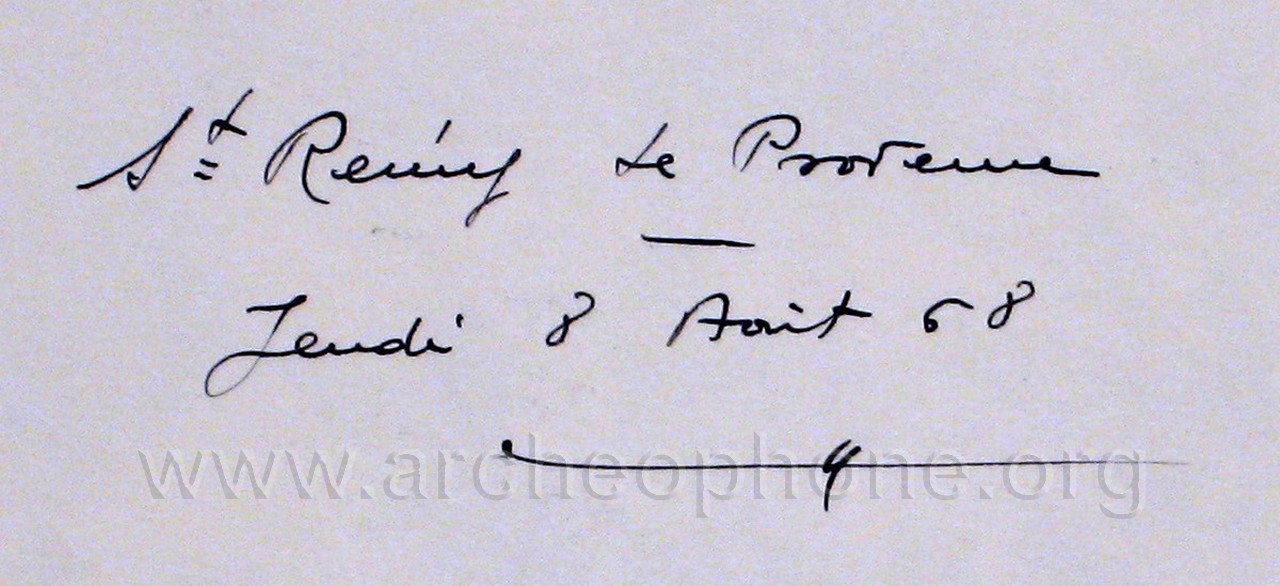 St Rémy de Provence
Jeudi 8 Août 68
www.archeophone.org